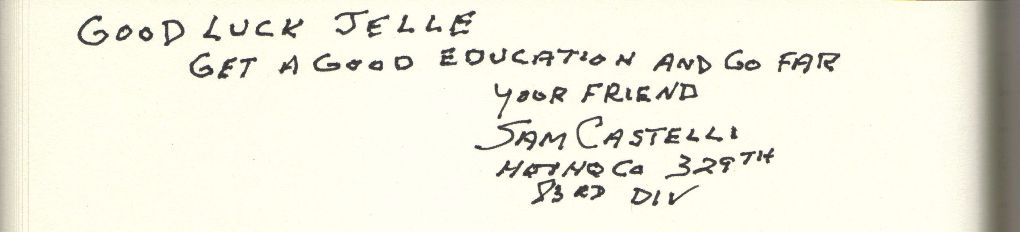 GOOD LUCK JELLE
GET A GOOD EDUCATION AND GO FAR
YOUR FRIEND
SAM CASTELLI
Co 329TH
83RD DIV